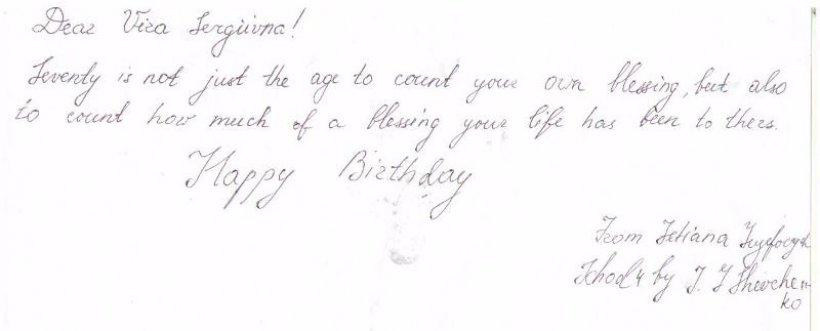 Dear Vira Sergiivna!
Seventy is not just the age to count your own blessing, but also
to count how much of a blessing your life has been to thers.
Happy Birthday
From Tetiana
School 4 by T. G Shevchen-
ko